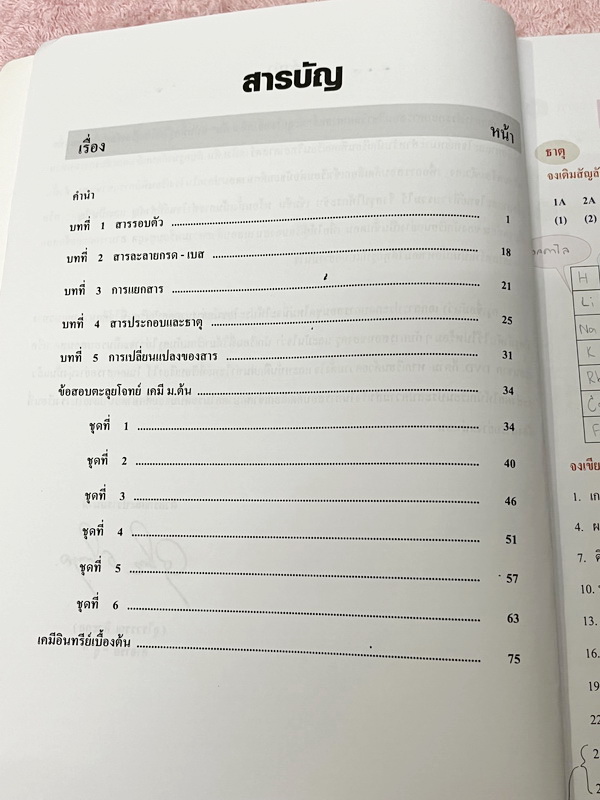 สารบัญ
เรื่อง หน้า
คำนำ
บทที่ 1 สารรอบตัว 1
บทที่ 2 สารละลายกรด - เบส 18
บทที่ 3 การแยกสาร 21
บทที่ 4 สารประกอบและธาตุ 25
บทที่ 5 การเปลี่ยนแปลงของสาร 31
ข้อสอบตะลุยโจทย์ เคมี ม.ต้น 34
ชุดที่ 1 34
ชุดที่ 2 40
ชุดที่ 3 46
ชุดที่ 4 51
ชุดที่ 5 57
ชุดที่ 6 63
เคมีอินทรีย์เบื้องต้น 75
ธาตุ
1A 2A
(1) (2)
H
Li
Na
K
1.
4.
7.
10.
13.
16.
19
22